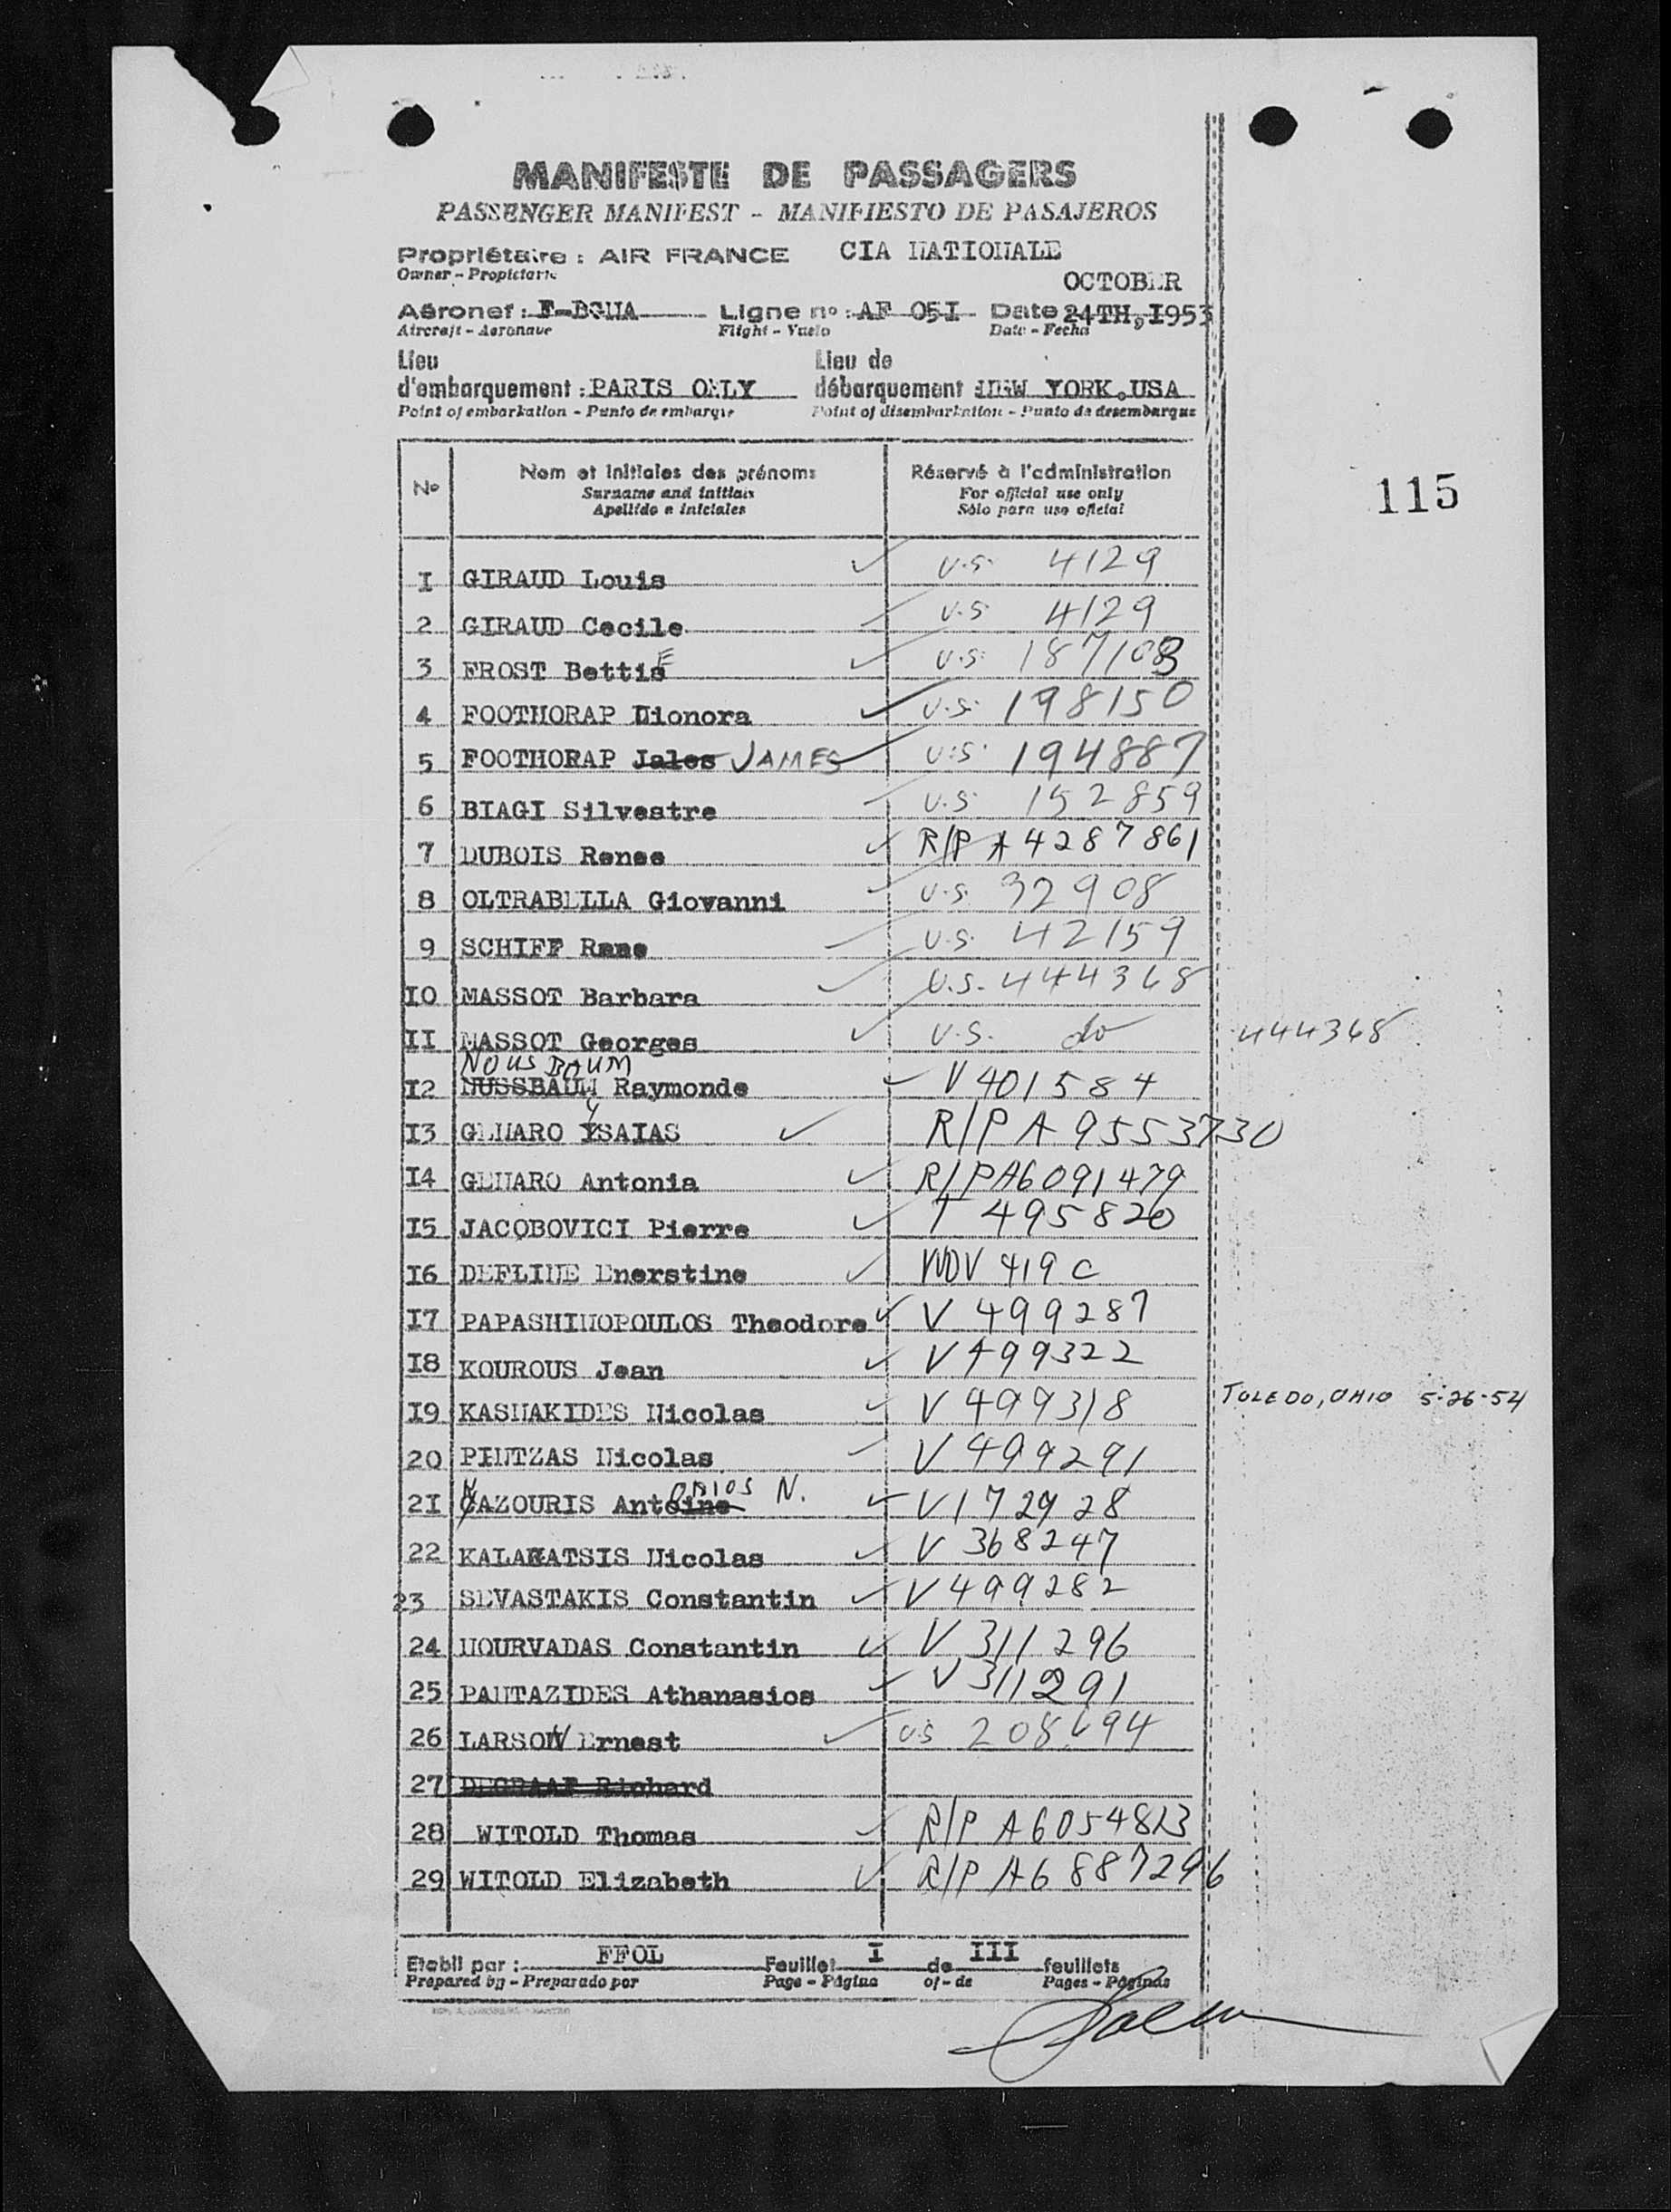 MANIFESTE DE PASSAGERS
PASSENGER MANIFEST - MANIFIESTO DE PASAJEROS
Propriétaire : AIR FRANCE CIA NATIONALE
Owner - Propietario
OCTOBER
Aéronef : F-BGNA Ligne no : AF 05I Date 24TH, I953
Aircraft - Aeronave Flight - Vuelo Date - Fecha
Lieu Lieu de
d'embarquement : PARIS ONLY débarquement NEW YORK, USA
Point of embarkation - Punto de embarque Point of disembarkation - Punto de desembarque
No Nom et initiales des prénoms Réservé à l'administration
Surname and initials For official use only
Apellido e iniciales Sólo para uso oficial
115
I GIRAUD Louis U.S. 4129
2 GIRAUD Cecile U.S. 4129
3 FROST Bettie U.S. 187108
4 FOOTHORAP Dionora U.S. 198150
5 FOOTHORAP Jales JAMES U.S. 194887
6 BIAGI Silvestre U.S. 152859
7 DUBOIS Renee R/P A 4287861
8 OLTRABELLA Giovanni U.S. 32908
9 SCHIFF Rene U.S. 42159
I0 MASSOT Barbara U.S. 444368
II MASSOT Georges U.S. do 444368
NOUSBAUM
I2 NUSSBAUM Raymonde V 401584
I3 GENARO YSAIAS R/P A 9553730
I4 GENARO Antonia R/P A6091479
I5 JACOBOVICI Pierre T 495820
I6 DEFLINE Enerstine NDV 419 C
I7 PAPASHINOPOULOS Theodore V 499287
I8 KOUROUS Jean V 499322
I9 KASNAKIDES Nicolas V 499318 TOLEDO, OHIO 5-26-54
20 PINTZAS Nicolas V 499291
2I CAZOURIS Antoine N. V 172928
22 KALAKATSIS Nicolas V 368247
23 SEVASTAKIS Constantin V 499282
24 MOURVADAS Constantin V 311296
25 PANTAZIDES Athanasios V 311291
26 LARSON Ernest US 208694
27 DEGRAAF Richard
28 WITOLD Thomas R/P A6054813
29 WITOLD Elizabeth R/P A6887296
Etabli par : FFOL Feuillet I de III feuillets
Prepared by - Preparado por Page - Página of - de Pages - Páginas